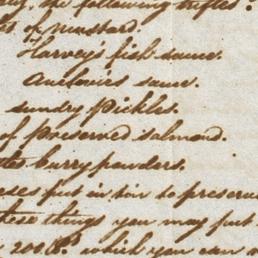 the following trifles.
of mustard.
Harvey's fish sauce.
anchovies saus.
sundry Pickles.
of preserved salmond.
curry powders.
put in tin to preserve
these things you may put
200 lb. which you can